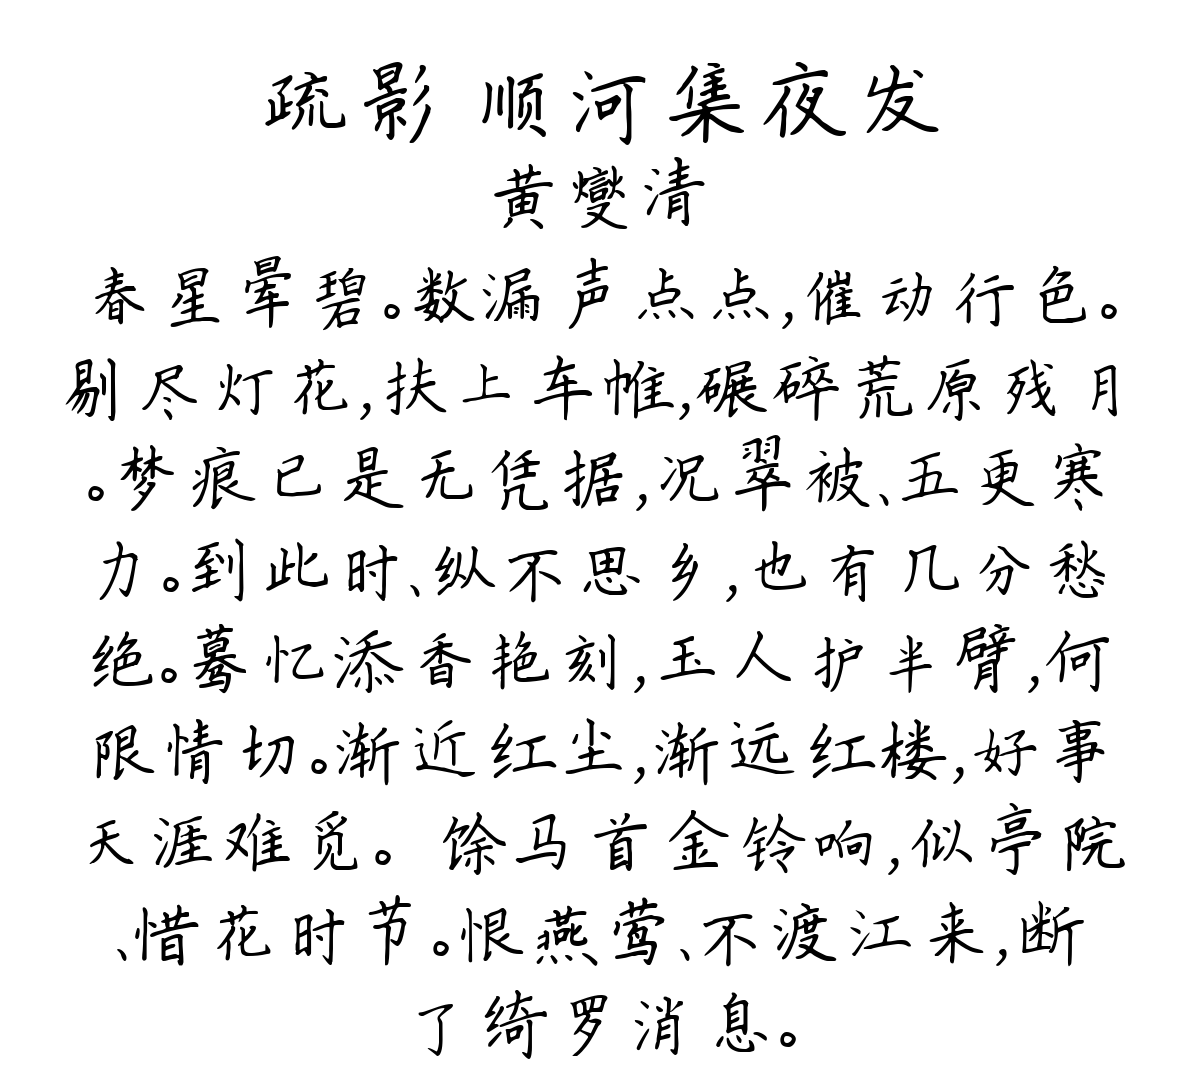 疏影 顺河集夜发
黄燮清
春星晕碧。数漏声点点,催动行色。
剔尽灯花,扶上车帷,碾碎荒原残月
。梦痕已是无凭据,况翠被、五更寒
力。到此时、纵不思乡,也有几分愁
绝。蓦忆添香艳刻,玉人护半臂,何
限情切。渐近红尘,渐远红楼,好事
天涯难觅。 馀马首金铃响,似亭院
、惜花时节。恨燕莺、不渡江来,断
了绮罗消息。